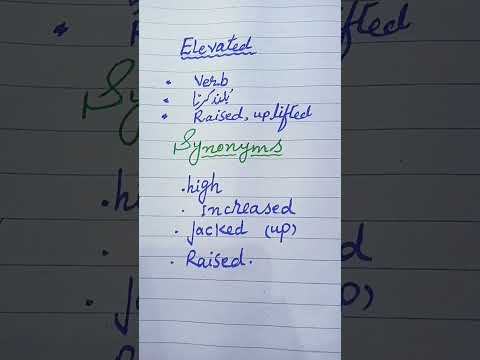 Elevated
• Verb
• بلند کرنا
• Raised, uplifted
Synonyms
• high
• increased
• Jacked (up)
• Raised.